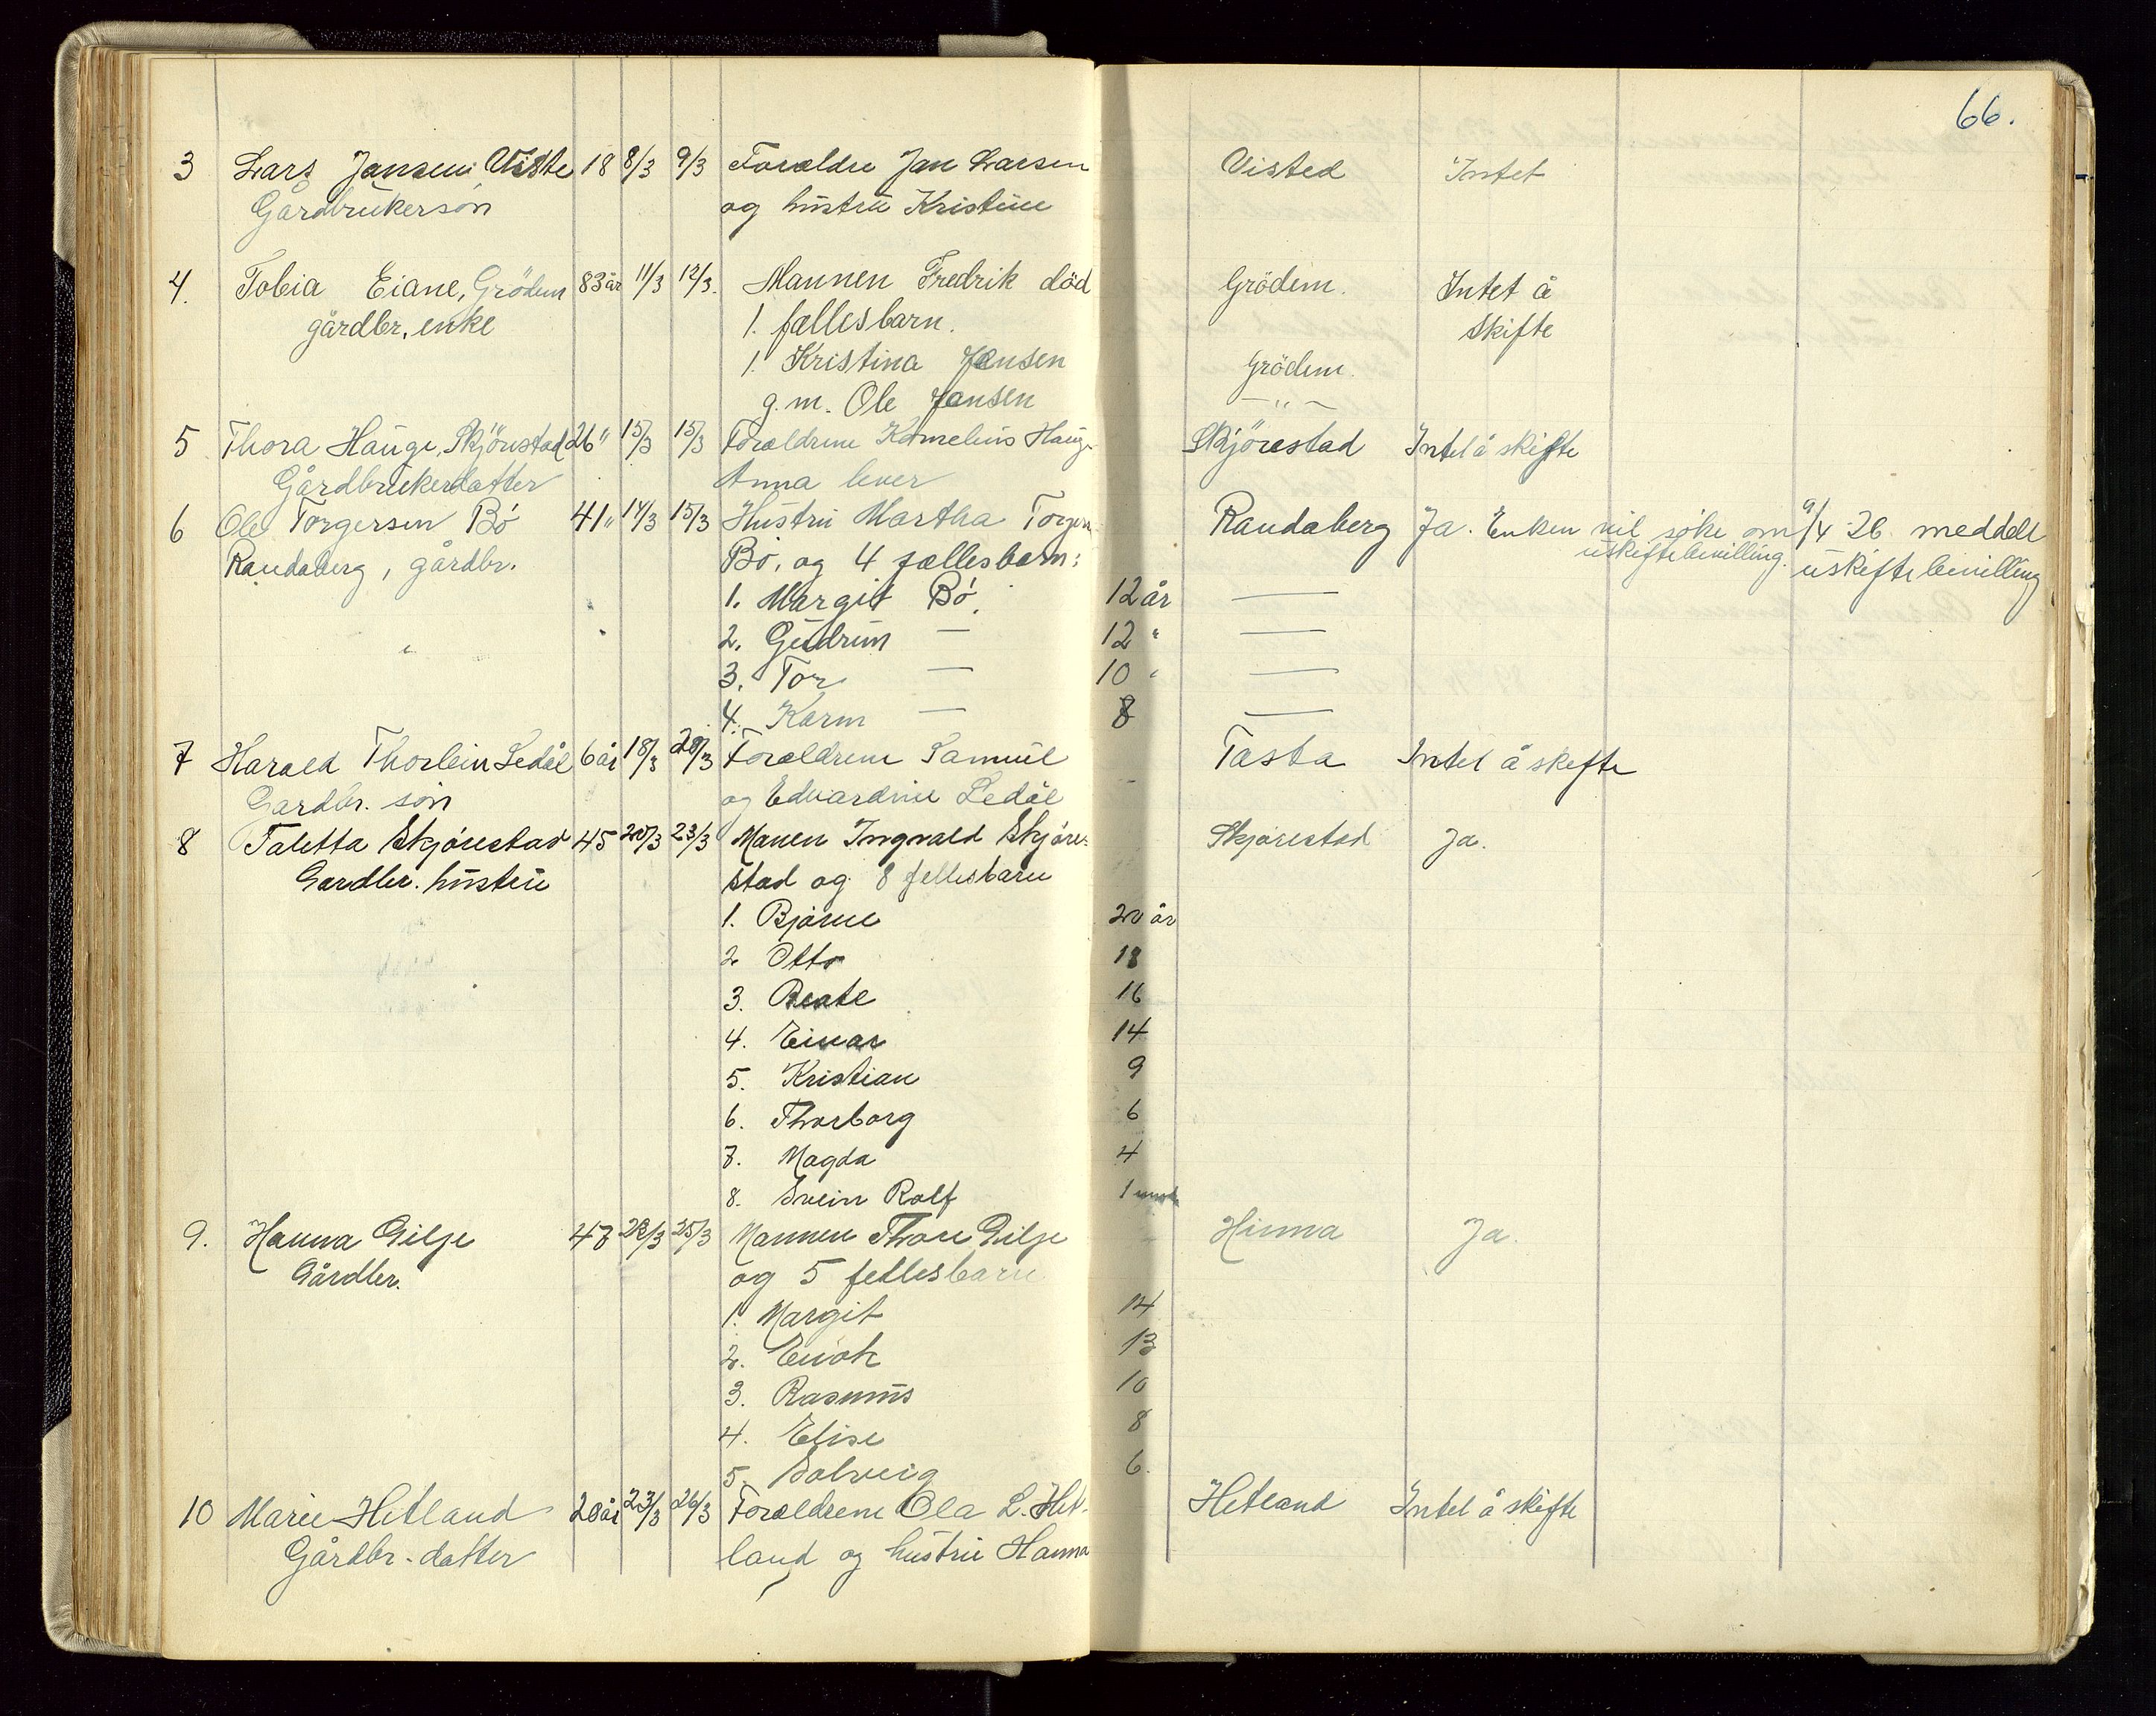 66.
3 Lars Jansen Viste 18 8/3 9/3 Forældre Jan Larsen Visted Intet
Gårdbrukersøn og hustru Kristine
4. Tobia Eiane, Grödem 83 år 11/3 12/3. Mannen Fredrik död Grödem. Intet å
gårdbr. enke 1. fællesbarn. skifte
1. Kristina Jansen Grödem.
g.m. Ole Jansen — " —
5 Thora Hauge, Skjörestad 26 " 15/3 15/3 Forældrene Kornelius Hauge Skjörestad Intet å skifte
Gårdbrukerdatter Anna lever
6 Ole Torgersen Bö 41 " 14/3 15/3 Hustru Martha Torgersen Randaberg Ja. Enken vil söke om 9/4 26. meddelt
Randaberg, gårdbr. Bö, og 4 fællesbarn: uskiftebevilling. uskiftebevilling
1. Margit Bö. 12 år —
2. Gudrun — 12 " —
3. Tor — 10 " —
4. Karin — 8 —
7 Harald Thorbein Ledål 6 år 18/3 20/3 Forældrene Samuel Tasta Intet å skifte
Gardbr. sön og Edvardine Ledål
8 Taletta Skjörestad 45 20/3 23/3 Manen Ingvald Skjöre- Skjörestad Ja.
Gardbr. hustru stad og 8 fellesbarn
1. Bjarne 20 år
2 Otto 18
3. Beate 16
4. Einar 14
5. Kristian 9
6. Thorborg 6
7. Magda 4
8. Svein Rolf 1
9. Hanna Gilje 47 22/3 25/3 Mannen Thore Gilje Hinna Ja.
Gårdbr. og 5 fellesbarn
1. Margit 14
2. Enok 13
3. Rasmus 10
4. Elise 8
5. Solveig 6.
10 Marie Hetland 20 år 23/3 26/3 Forældrene Ola L. Het- Hetland Intet å skifte
Gårdbr. datter land og hustru Hanna